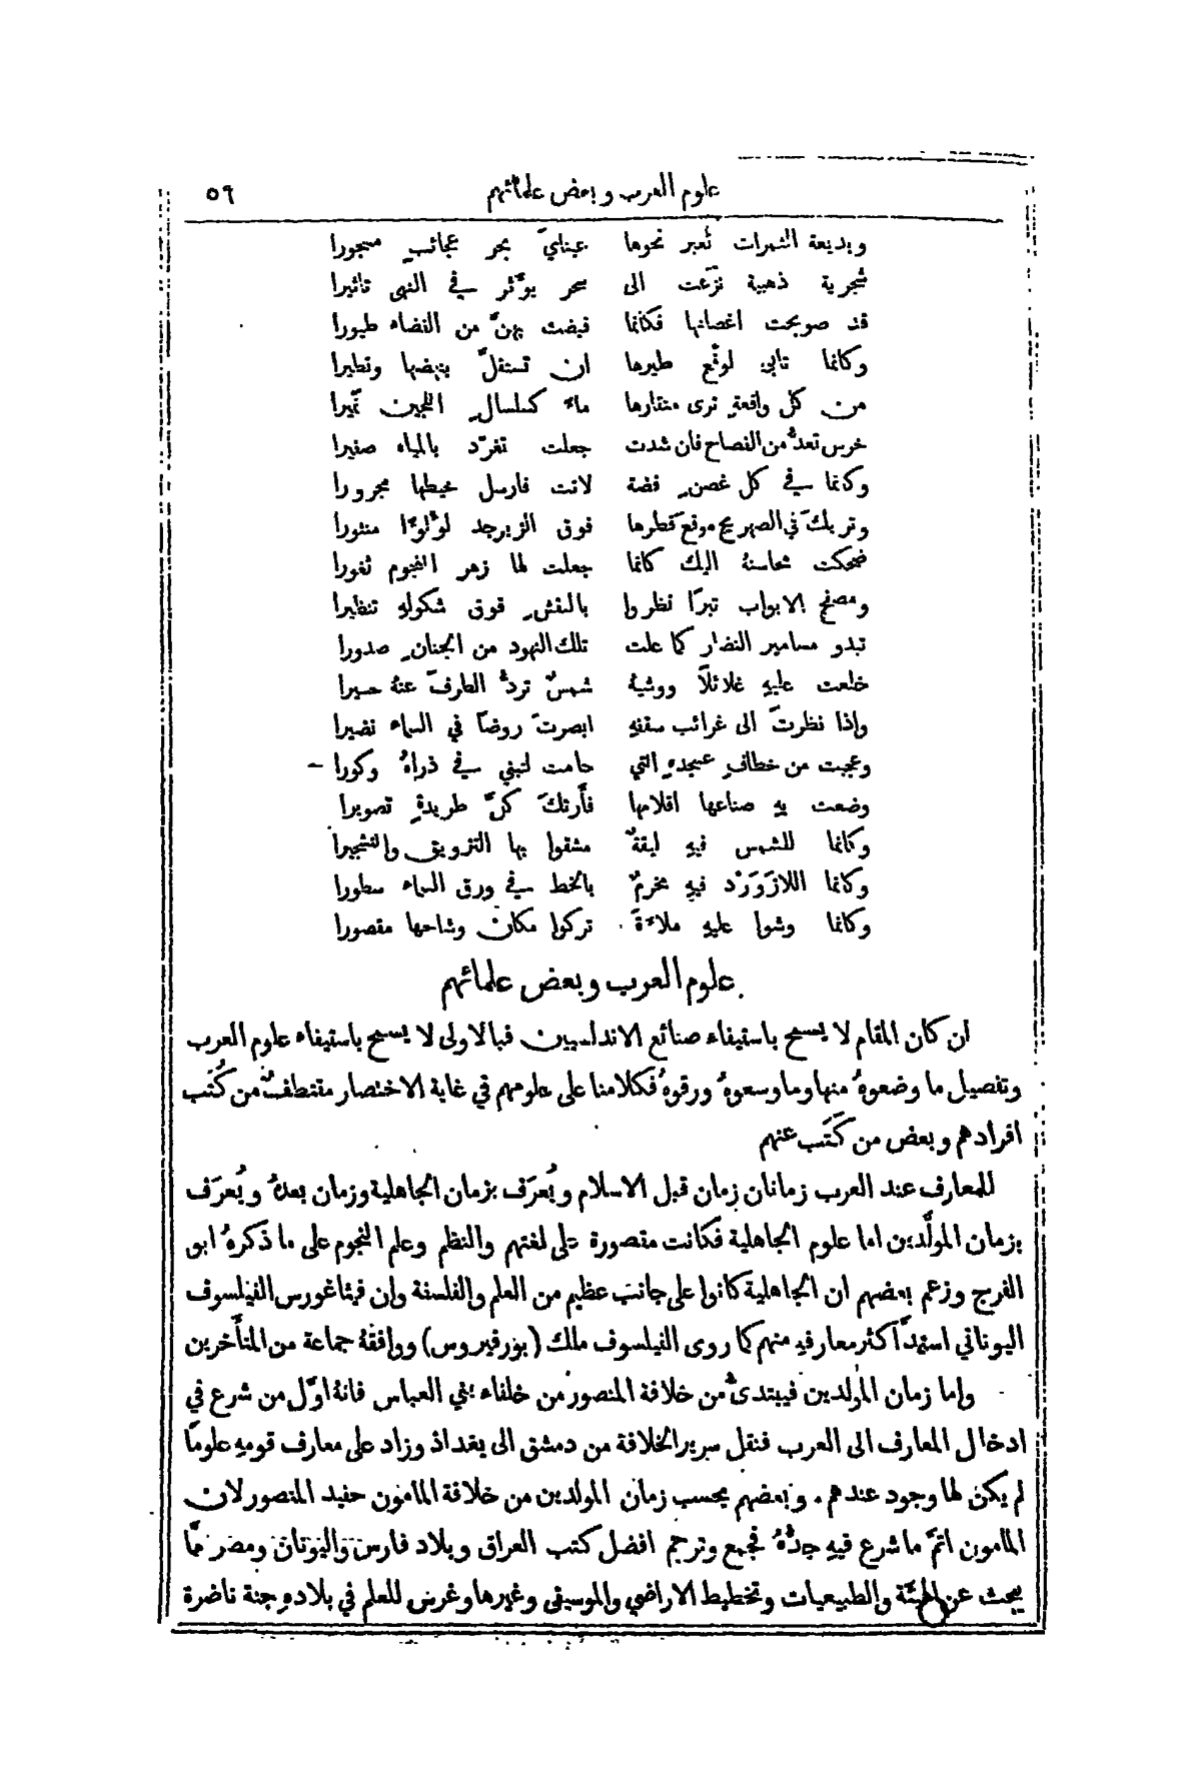 علوم العرب وبعض علمائهم ٥٩
وبديعة الثمرات تَعبر نحوها عينايَ بحر عجائبٍ مسجورا
شجرية ذهبية نزَعت الى سحر يوَّثر في النهى تاثيرا
قد صولجت اغصانها فكانما قبضت بهنَّ من الفضاء طيورا
وكانما تابى لوقَّع طيرها ان تستقلَّ بنهضها وتطيرا
من كل واقعةٍ ترى منقارها ماءً كسلسالِ اللجين نميرا
خرس تعدُّ من الفصاح فان شدت جعلت تغرّد بالمياه صفيرا
وكانما في كل غصنٍ فضة لانت فارسل خيطها مجرورا
وتريكَ في الصهريج موقعَ قطرها فوق الزبرجد لوُلوءًا منثورا
ضحكت محاسنهُ اليك كانما جعلت لها زهر النجوم ثغورا
ومصفح الابواب تبرًا نظروا بالنقش فوق شكولهِ تنظيرا
تبدو مسامير النضار كما علت تلك النهود من الجنان صدورا
خلعت عليهِ غلائلاً ووشيةً شمسٌ تردُّ الطرفَ عنهُ حسيرا
واذا نظرتَ الى غرائب سقفهِ ابصرتَ روضًا في السماء نضيرا
وعجبت من خطافِ عسجدهِ التي حامت لتبني في ذراهُ وكورا
وضعت بهِ صناعها اقلامها فأَرتكَ كلَّ طريدةٍ تصويرا
وكانما للشمس فيهِ ليقةٌ مشقوا بها التزويق والتشجيرا
وكانما اللازَوَرْد فيهِ مخرمٌ بالخط في ورق السماء سطورا
وكانما وشوا عليهِ ملاءَةً تركوا مكان وشاحها مقصورا
علوم العرب وبعض علمائهم
ان كان المقام لا يسمح باستيفاء صنائع الاندلسيين فبالاولى لا يسمح باستيفاء علوم العرب
وتفصيل ما وضعوهُ منها وما وسعوهُ ورقوهُ فكلامنا على علومهم في غاية الاختصار مقتطفٌ من كُتب
افرادهم وبعض من كَتَب عنهم
للمعارف عند العرب زمانان زمان قبل الاسلام ويُعرَف بزمان الجاهلية وزمان بعدهُ ويُعرَف
بزمان المولَّدين اما علوم الجاهلية فكانت مقصورة على لغتهم والنظم وعلم النجوم على ما ذكرهُ ابو
الفرج وزعم بعضهم ان الجاهلية كانوا على جانب عظيم من العلم والفلسفة وان فيثاغورس الفيلسوف
اليوناني استمدَّ اكثر معارفهِ منهم كما روى الفيلسوف ملك (بورفيروس) ووافقهُ جماعة من المتأَخرين
واما زمان المولدين فيبتدئُ من خلافة المنصور من خلفاء بني العباس فانهُ اوَّل من شرع في
ادخال المعارف الى العرب فنقل سرير الخلافة من دمشق الى بغداذ وزاد على معارف قومهِ علومًا
لم يكن لها وجود عندهم. وبعضهم يحسب زمان المولدين من خلافة المامون حفيد المنصور لان
المامون اتمَّ ما شرع فيهِ جدُّهُ فجمع وترجم افضل كتب العراق وبلاد فارس واليونان ومصر مما
يبحث عن الهيئة والطبيعيات وتخطيط الاراضي والموسيقى وغيرها وغرس للعلم في بلادهِ جنة ناضرة